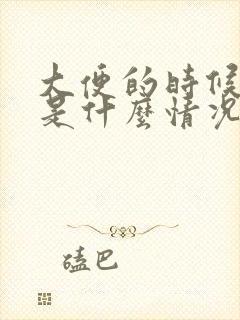 大便的時候
是什麼情況
磕巴